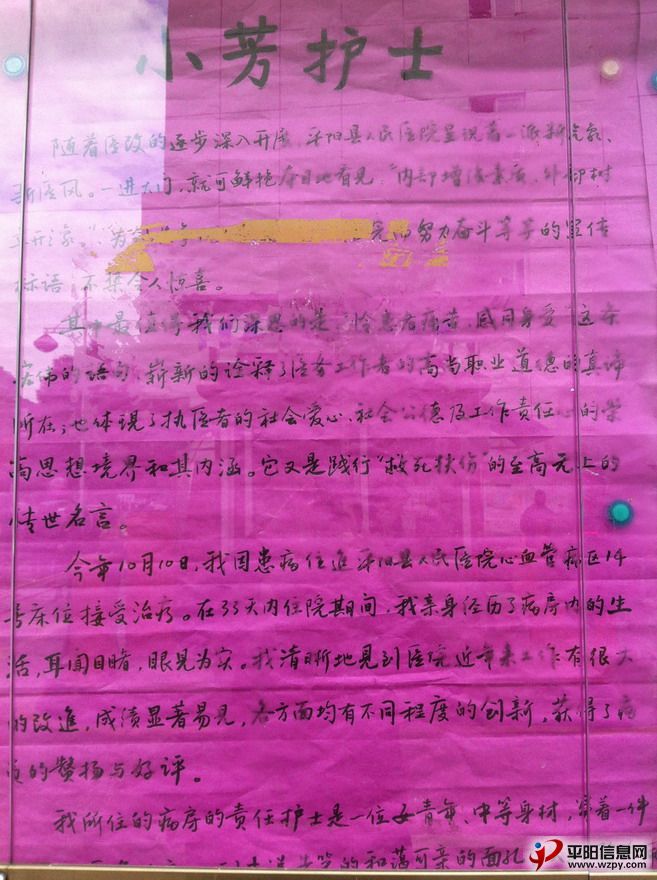 小芳护士
随着医改的逐步深入开展,平阳县人民医院呈现着一派新气象、
新医风。一进大门,就可鲜艳夺目地看见:"内部增强素质,外部树
立形象""为 而努力奋斗等等的宣传
标语,不禁令人惊喜。
其中最值得我们深思的是"患者痛苦,感同身受"这条
的语句,崭新的诠释了医务工作者的高尚职业道德的真谛
所在;也体现了执医者的社会爱心、社会公德及工作责任心的崇
高思想境界和其内涵。它又是践行"救死扶伤"的至高无上的
传世名言。
今年10月10日,我因患病住进平阳县人民医院心血管病区14
号床位接受治疗。在33天内住院期间,我亲身经历了病房内的生
活,耳闻目睹,眼见为实。我清晰地见到医院近年来工作有很大
的改进,成绩显著易见,各方面均有不同程度的创新,获得了病
员的赞扬与好评。
我所住的病房的责任护士是一位女青年、中等身材,穿着一件
的和蔼可亲的面孔
平阳信息网
www.wzpy.com